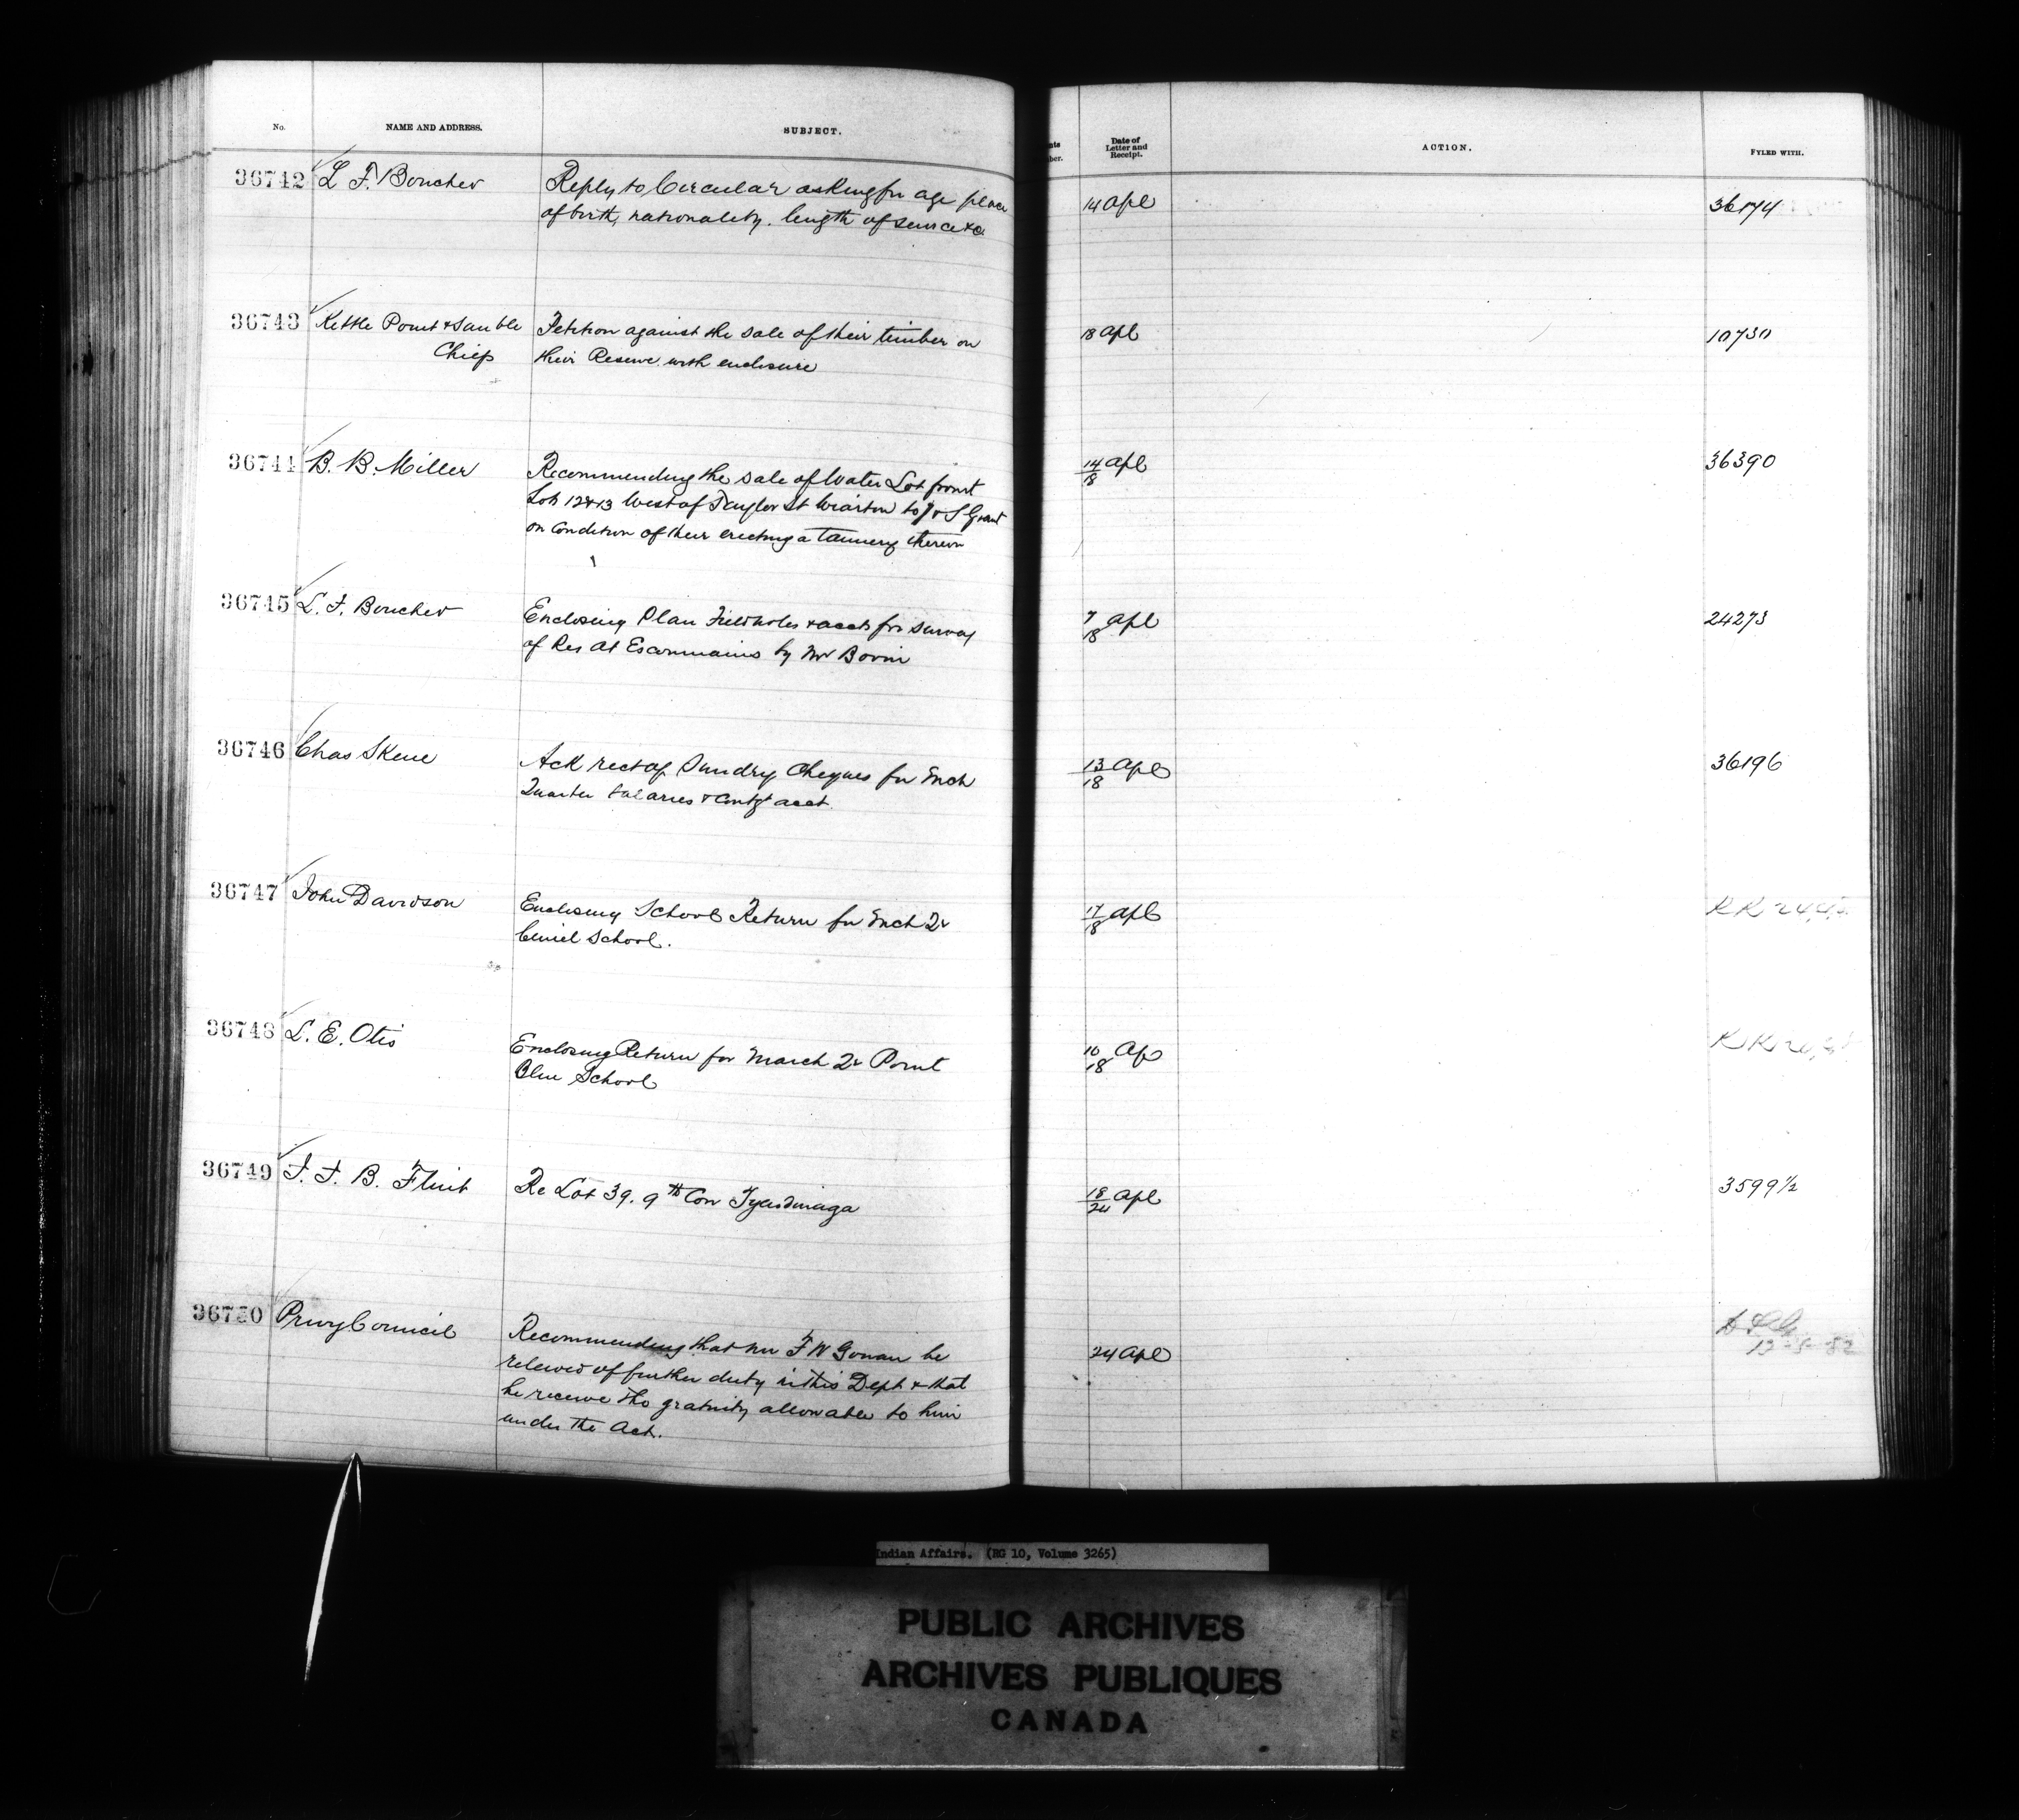 No. NAME AND ADDRESS. SUBJECT. Date of Letter and Receipt. ACTION. FYLED WITH.
36742 L. F. Boucher Reply to Circular asking for age place 14 Apl 36174
of birth, nationality, length of service &c
36743 Kettle Point & Sauble Petition against the sale of their timber on 18 Apl 10730
Chiefs their Reserve with enclosure
36744 B. B. Miller Recommending the sale of Water Lot front 14/18 Apl 36390
Lots 12 & 13 West of Taylor St Wiarton to J & S Grant
on condition of their erecting a tannery thereon
36745 L. F. Boucher Enclosing Plan Fieldnotes & accts for survey 7/18 Apl 24273
of Res at Escoumains by Mr Bovin
36746 Chas Skene Ack rect of Sundry Cheques for Mch 13/18 Apl 36196
Quarter Salaries & Contgt acct.
36747 John Davidson Enclosing School Return for Mch Qr 17/18 Apl
School.
36748 L. E. Otis Enclosing Return for March Qr Point 10/18 Ap
Blue School
36749 J. J. B. Flint Re Lot 39. 9th Con Tyendinaga 18/24 Apl 3599½
36750 Privy Council Recommending that Mr F W Gowan be 24 Apl
relieved of further duty in this Dept & that
he receive the gratuity allowable to him
under the Act.
Indian Affairs. (RG 10, Volume 3265)
PUBLIC ARCHIVES
ARCHIVES PUBLIQUES
CANADA